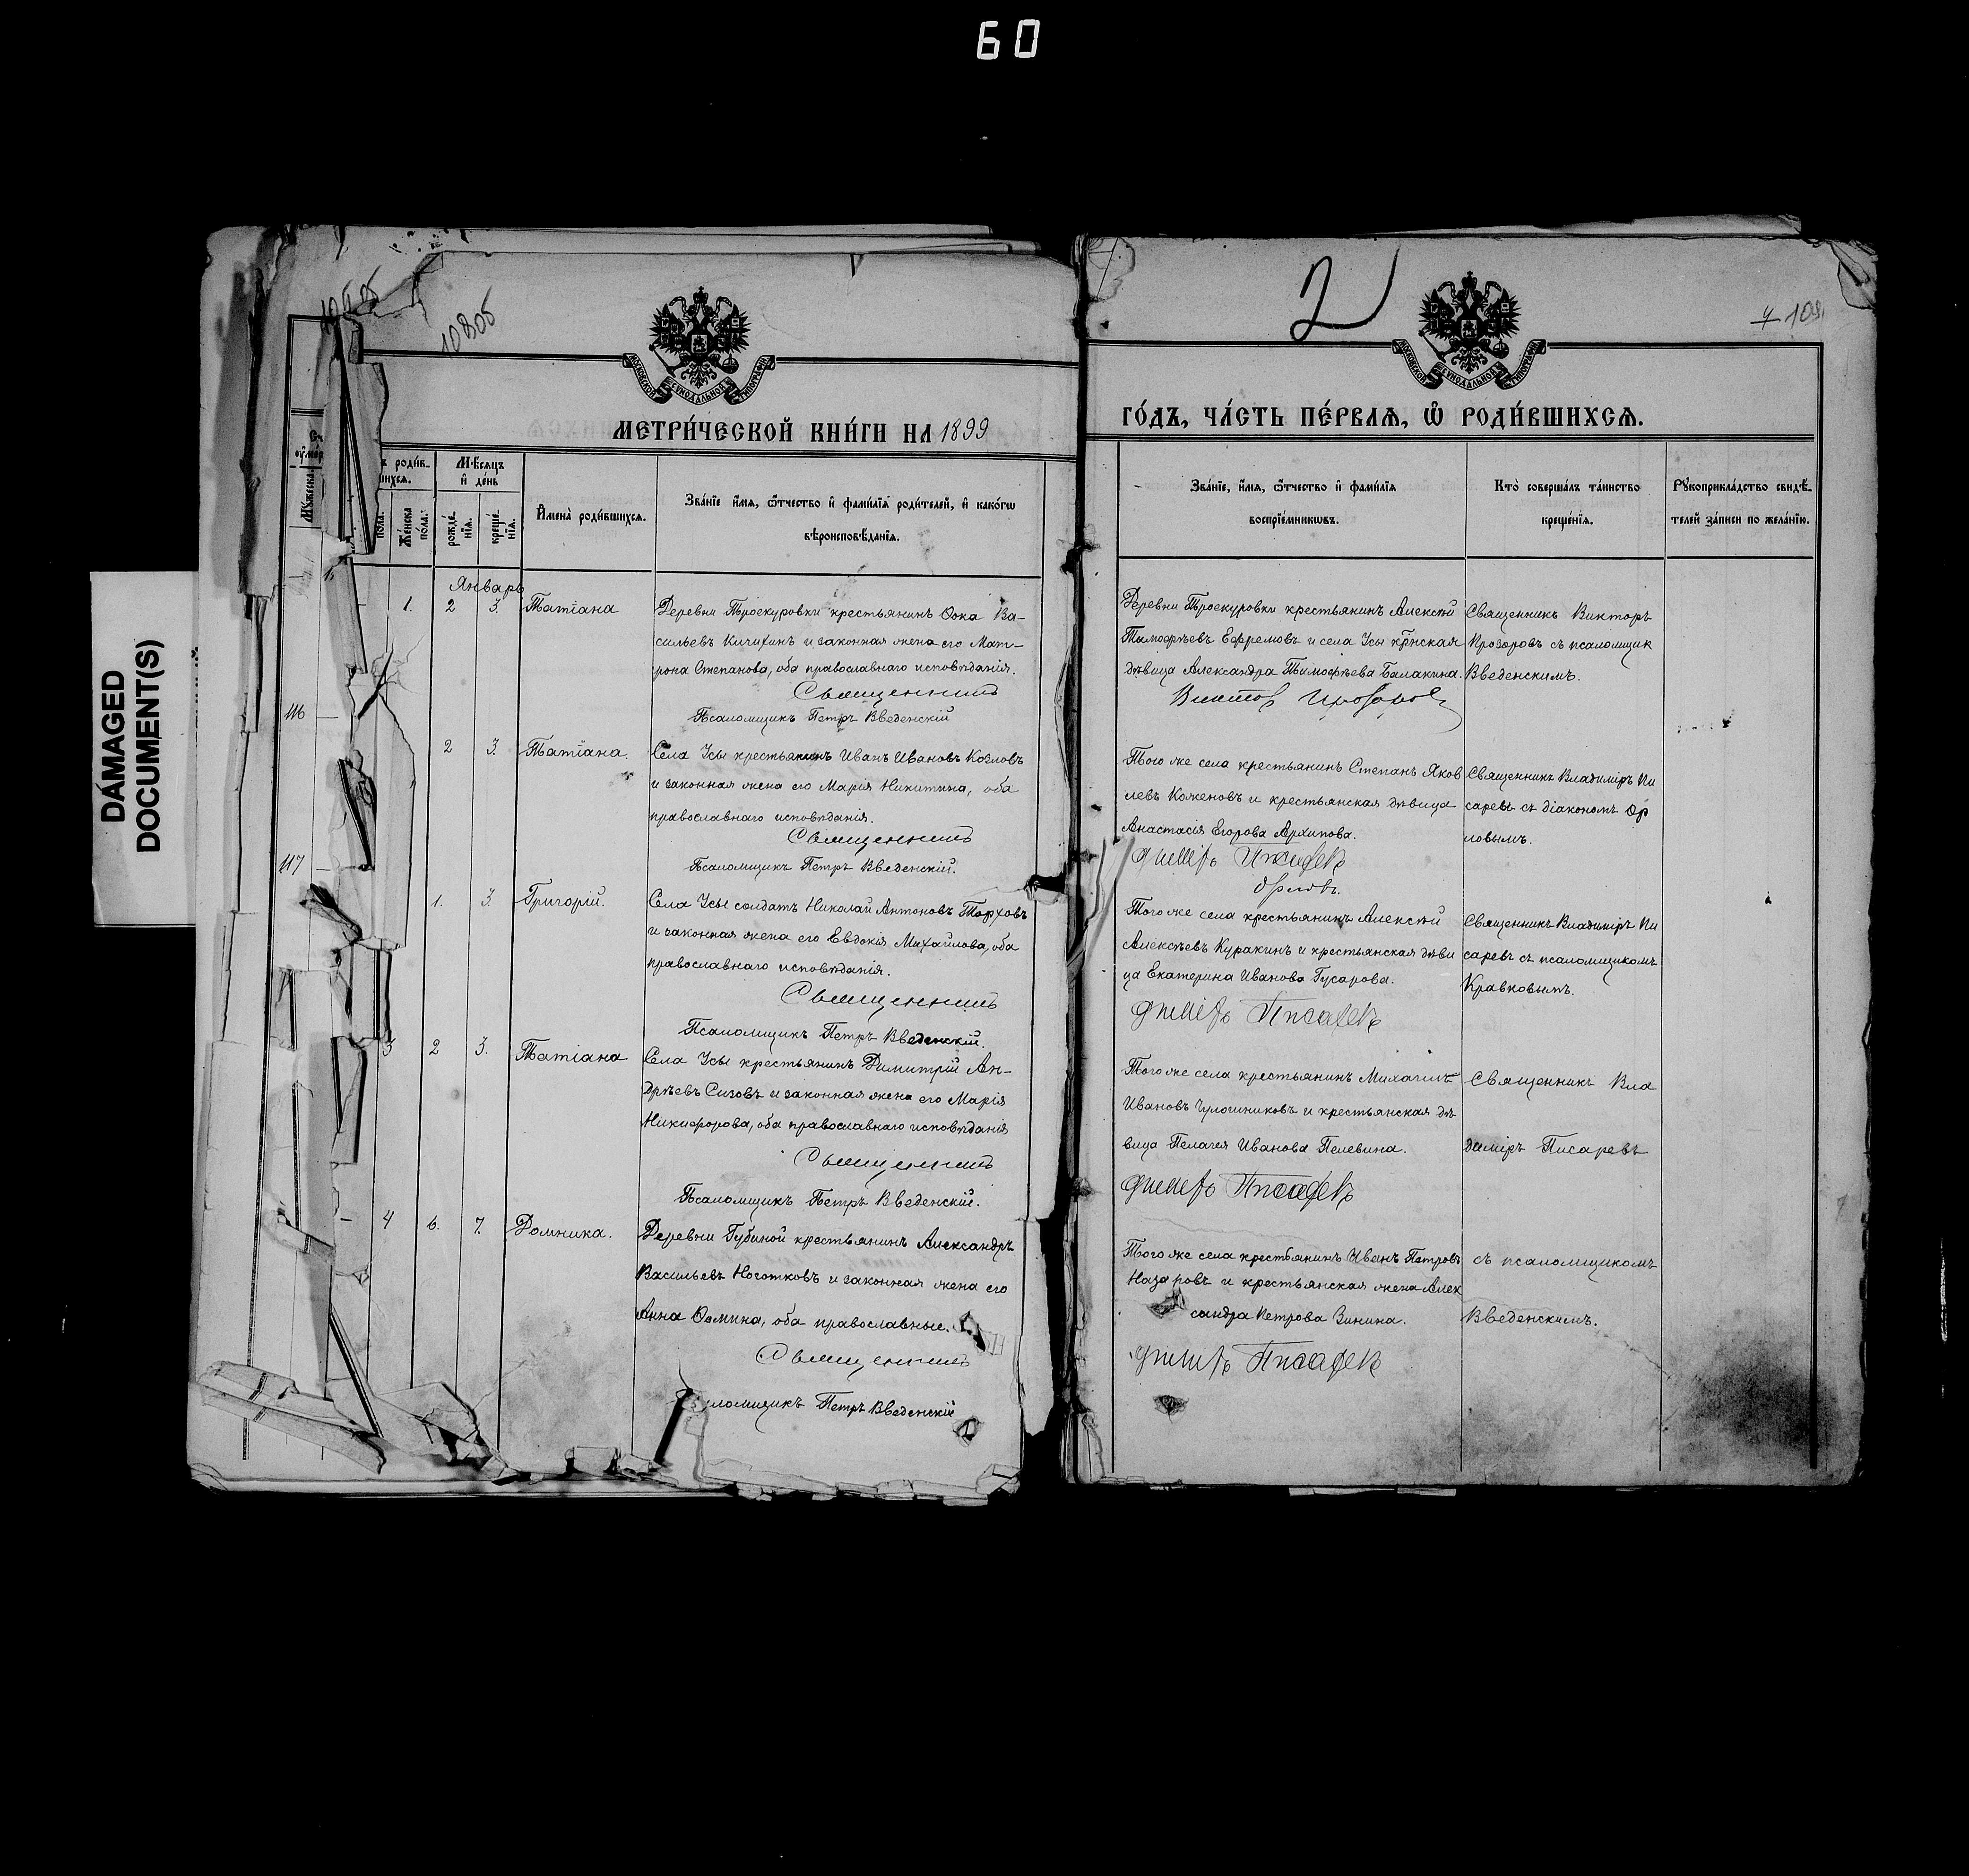 60
DAMAGED
DOCUMENT(S)
108об
2
4 109
МОСКОВСКОЙ СѴНОДАЛЬНОЙ ТИПОГРАФІИ
МОСКОВСКОЙ СѴНОДАЛЬНОЙ ТИПОГРАФІИ
МЕТРИ́ЧЕСКОЙ КНИ́ГИ НА 1899
ГО́ДЪ, ЧА́СТЬ ПЕ́РВАЯ, Ѡ҆ РОДИ́ВШИХСЯ.
Мꙋжеска
пола.
Же́нска
по́ла.
Мѣ́сяцъ
и҆ де́нь
рожде́-
нїя.
креще́-
нїя.
И҆мена̀ роди́вшихся.
Зва́нїе и҆́мя, ѻ҆́тчество и҆ фами́лїя роди́телей, и҆ како́гѡ
вѣроисповѣ́данїя.
Зва́нїе, и҆́мя, ѻ҆́тчество и҆ фами́лїя
воспрїе́мникѡвъ.
Кто̀ соверша́лъ та́инство
креще́нїя.
Рꙋкоприкла́дство свидѣ́-
телей за́писи по жела́нїю.
Январь
1. 2 3. Татіана
Деревни Троекуровки крестьянинъ Ѳока Ва-
сильевъ Кичихинъ и законная жена его Мат-
рона Степанова, оба православнаго исповѣданія.
Священникъ
Псаломщикъ Петръ Введенскій
Деревни Троекуровки крестьянинъ Алексѣй
Тимоѳѣевъ Ефремовъ и села Усы кр̃нская
дѣвица Александра Тимоѳѣева Балакина.
Викторъ Прозоровъ
Священникъ Викторъ
Прозоровъ съ псаломщик
Введенскимъ.
116
2 3. Татіана.
Села Усы крестьянинъ Иванъ Ивановъ Козловъ
и законная жена его Марія Никитина, оба
православнаго исповѣданія.
Священникъ
Псаломщикъ Петръ Введенскій.
Того же села крестьянинъ Степанъ Яков
левъ Коженовъ и крестьянская дѣвица
Анастасія Егорова Архипова.
Писаревъ
Орловъ.
Священникъ Владиміръ Пи
саревъ съ діакономъ Ор
ловымъ.
117
1. 3. Григорій.
Села Усы солдатъ Николай Антоновъ Торховъ
и законная жена его Евдокія Михайлова, оба
православнаго исповѣданія.
Священникъ
Псаломщикъ Петръ Введенскій.
Того же села крестьянинъ Алексѣй
Алексѣевъ Куракинъ и крестьянская дѣви
ца Екатерина Иванова Гусарова.
Писаревъ
Священникъ Владиміръ Пи
саревъ съ псаломщикомъ
Кравковымъ.
3 2 3. Татіана
Села Усы крестьянинъ Димитрій Ан-
дрѣевъ Сиговъ и законная жена его Марія
Никифорова, оба православнаго исповѣданія
Священникъ
Псаломщикъ Петръ Введенскій.
Того же села крестьянинъ Михаилъ
Ивановъ Чулошниковъ и крестьянская дѣ
вица Пелагея Иванова Пелевина.
Писаревъ
Священникъ Вла
диміръ Писаревъ
4 6. 7. Домника.
Деревни Губиной крестьянинъ Александръ
Васильевъ Ноготковъ и законная жена его
Анна Ѳомина, оба православные.
Священникъ
ломщикъ Петръ Введенскій
Того же села крестьянинъ Иванъ Петровъ
Назаровъ и крестьянская жена Алек
сандра Петрова Зинина.
Писаревъ
съ псаломщикомъ
Введенскимъ.